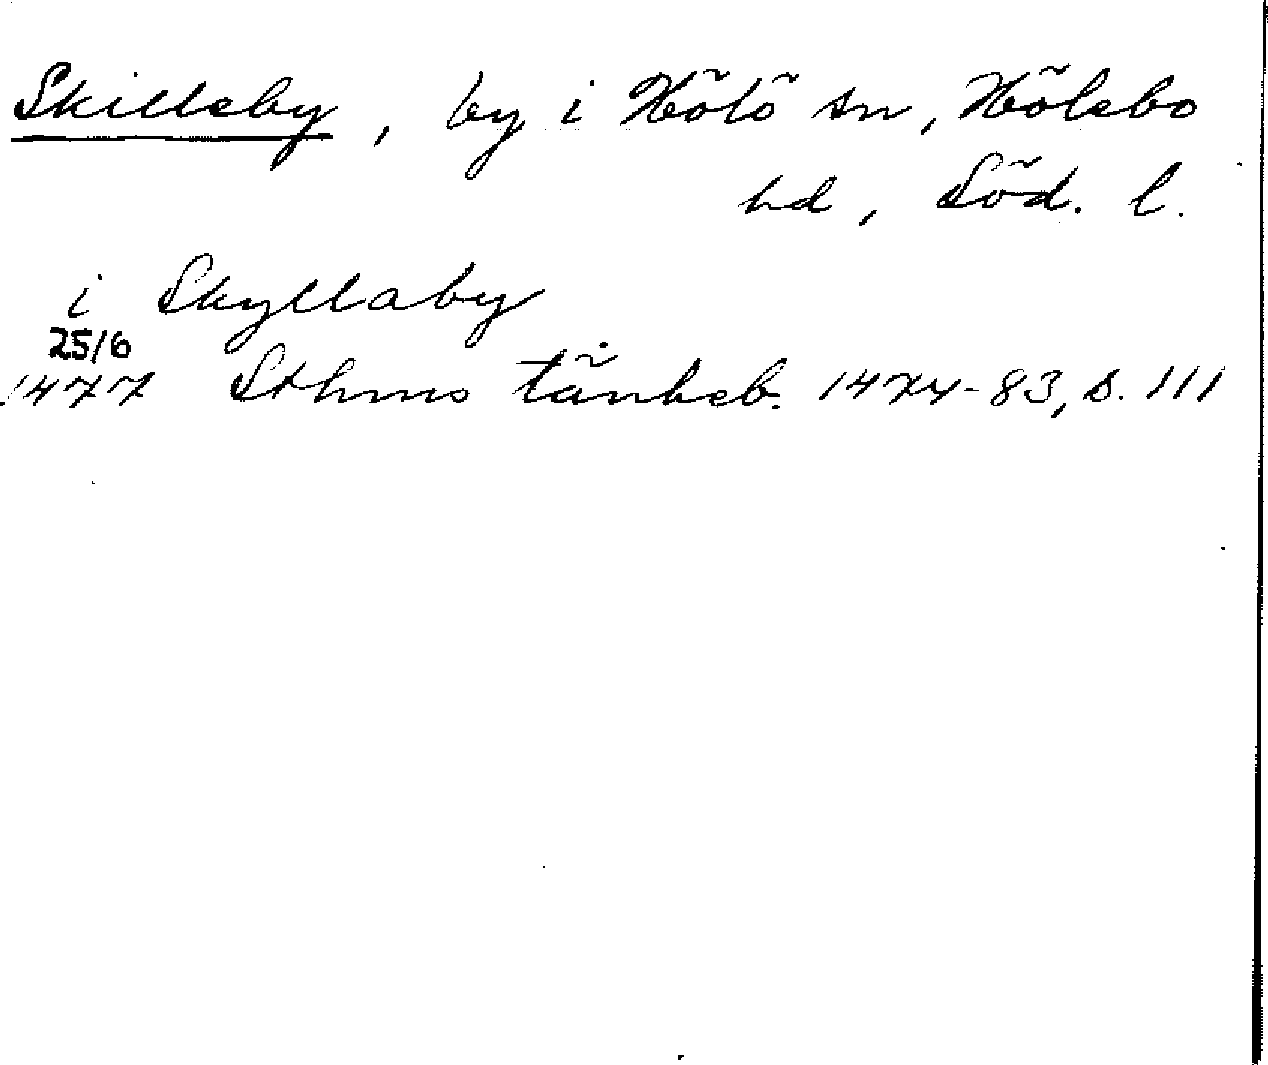 Skilleby, by i Hölö sn, Hölebo
hd, Söd. l.
i Skyllaby
25/6
1477 Sthms tänkeb. 1474-83, s. 111